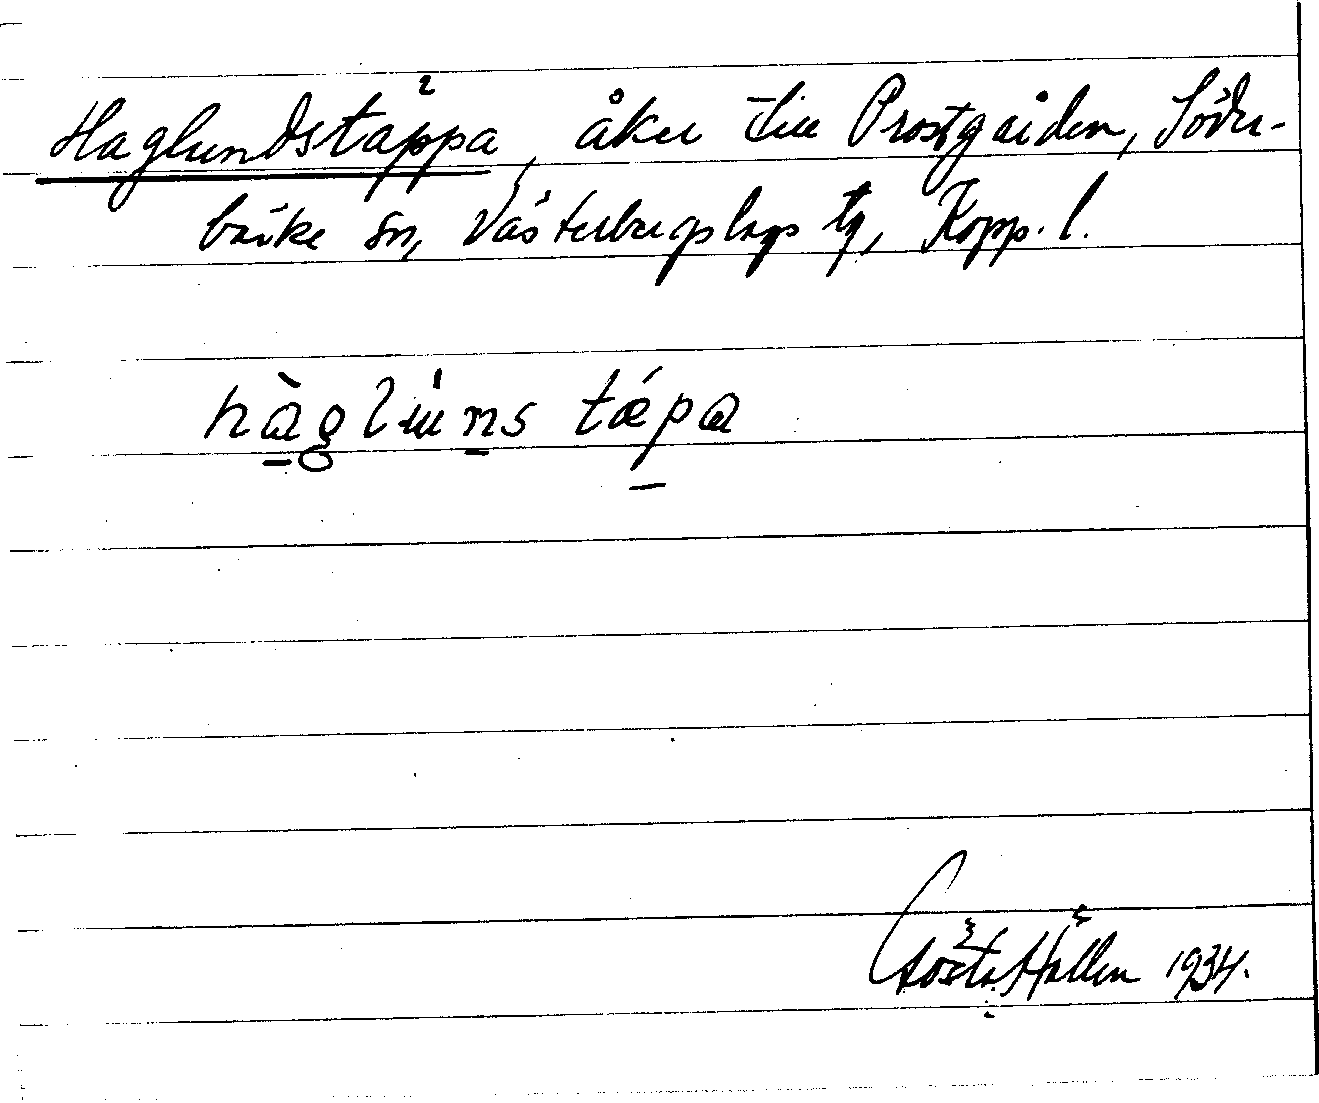 Haglundstäppa, åker till Prostgården, Söder-
bärke sn, Västerbergslags tg, Kopp. l.
hàgl̀uns tǽpa
Gösta Hållén 1934.